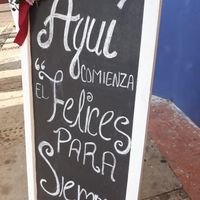 Aquí
COMIENZA
EL "Felices
PARA
Siemp